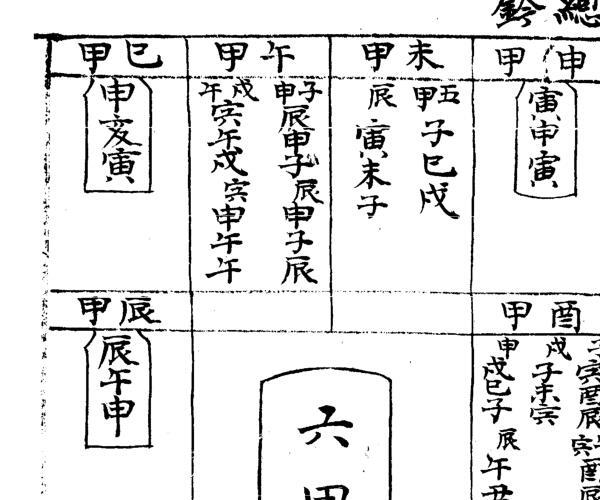 總鈐
甲申
寅申寅
甲未
甲子巳戌
辰寅未子
甲午
申子辰申子辰申子辰
午戌寅午戌寅申午午
甲巳
申亥寅
甲辰
辰午申
甲酉
戌子未寅
申戌巳子辰午丑
六甲